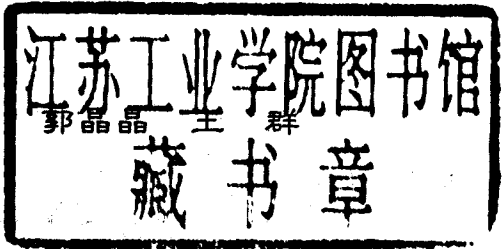 江苏工业学院图书馆
郭晶晶 王 群
藏书章